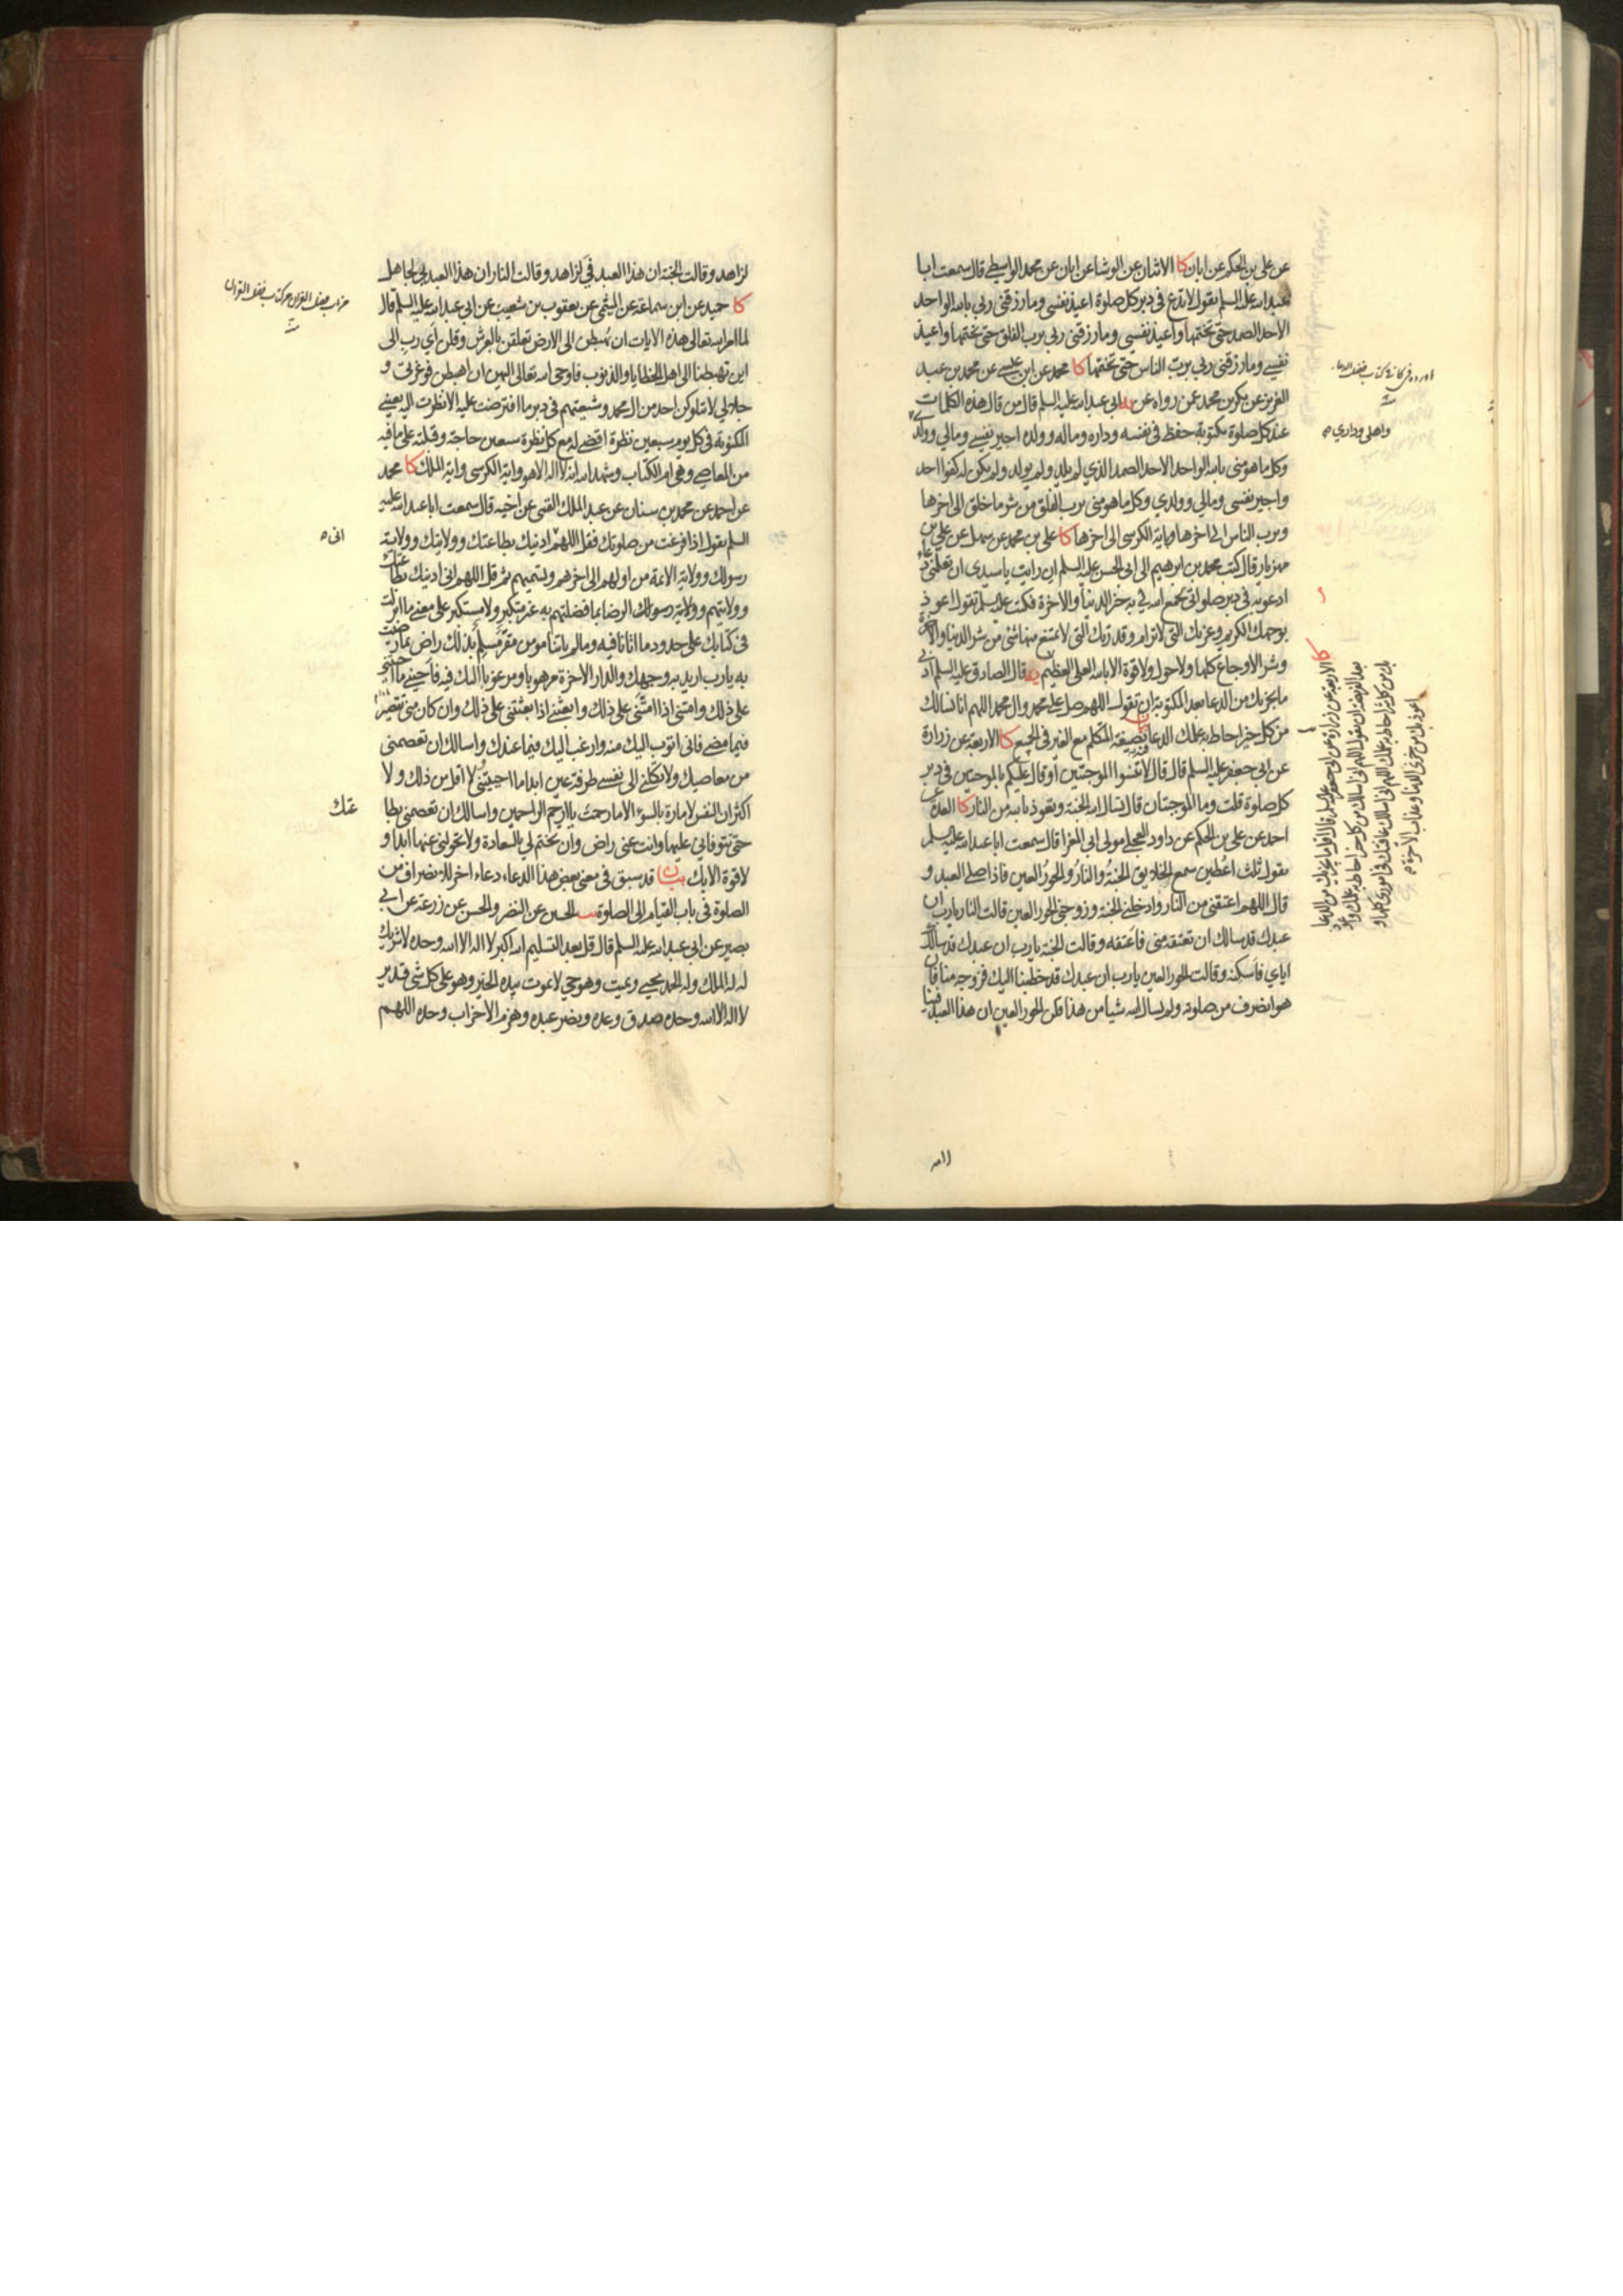 عن علي بن الحكم عن ابان كا الاثنان عن الوشا عن ابان عن محمد الواسطي قال سمعت ابا
عبد الله عليه السلم يقول لا تدع في دبر كل صلوة اعيذ نفسي وما رزقني ربي بالله الواحد
الاحد الصمد حتى تختمها واعيذ نفسي وما رزقني ربي برب الفلق حتى تختمها واعيذ
نفسي وما رزقني ربي برب الناس حتى تختمها كا محمد عن ابن عيسى عن محمد بن عبد
العزيز عن بكر بن محمد عمن رواه عن ابي عبد الله عليه السلم قال من قال هذه الكلمات
عند كل صلوة مكتوبة حفظ في نفسه وداره وماله وولده اجير نفسي ومالي وولدي
وكل ما هو مني بالله الواحد الاحد الصمد الذي لم يلد ولم يولد ولم يكن له كفوا احد
واجير نفسي ومالي وولدي وكل ما هو مني برب الفلق من شر ما خلق الى اخرها
وبرب الناس الى اخرها وباية الكرسي الى اخرها كا علي بن محمد عن سهل عن علي بن
مهزيار قال كتب محمد بن ابرهيم الى ابي الحسن عليه السلم ان رايت يا سيدي ان تعلمني دعاء
ادعو به في دبر صلواتي يجمع الله لي به خير الدنيا والاخرة فكتب عليه السلم تقول اعوذ
بوجهك الكريم وعزتك التي لا ترام وقدرتك التي لا يمتنع منها شئ من شر الدنيا والاخرة
وشر الاوجاع كلها ولا حول ولا قوة الا بالله العلي العظيم يه قال الصادق عليه السلم ادنى
ما يجزيك من الدعا بعد المكتوبة ان تقول اللهم صل على محمد وال محمد اللهم انا نسالك
من كل خير احاط به علمك الدعا بصيغة المتكلم مع الغير في الجميع كا الاربعة عن زرارة
عن ابي جعفر عليه السلم قال قال لا تنسوا الموجبتين او قال عليكم بالموجبتين في دبر
كل صلوة قلت وما الموجبتان قال تسال الله الجنة وتعوذ بالله من النار كا العدة عن
احمد عن علي بن الحكم عن داود العجلي مولى ابي المغرا قال سمعت ابا عبد الله عليه السلم
يقول ثلث اعطين سمع الخلايق الجنة والنار والحور العين فاذا صلى العبد و
قال اللهم اعتقني من النار وادخلني الجنة وزوجني الحور العين قالت النار يا رب ان
عبدك قد سالك ان تعتقه مني فاعتقه وقالت الجنة يا رب ان عبدك قد سالك
اياي فاسكنه وقالت الحور العين يا رب ان عبدك قد خطبنا اليك فزوجه منا فان
هو انصرف من صلوته ولم يسال الله شيا من هذا قلن الحور العين ان هذا العبد فينا
واهلي وداري صح
كا الاربعة عن زرارة عن ابي جعفر عليه السلم قال اقل ما يجزيك من الدعا
بعد الفريضة ان تقول اللهم اني اسالك من كل خير احاط به علمك واعوذ
بك من كل شر احاط به علمك اللهم اني اسالك عافيتك في اموري كلها و
اعوذ بك من خزي الدنيا وعذاب الاخرة
لزاهد وقالت الجنة ان هذا العبد في لزاهد وقالت النار ان هذا العبد بي لجاهل
كا حميد عن ابن سماعة عن الميثمي عن يعقوب بن شعيب عن ابي عبد الله عليه السلم قال
لما امر الله تعالى هذه الايات ان يهبطن الى الارض تعلقن بالعرش وقلن اي رب الى
اين تهبطنا الى اهل الخطايا والذنوب فاوحى الله تعالى اليهن ان اهبطن فوعزتي و
جلالي لا يتلوكن احد من ال محمد وشيعتهم في دبر ما افترضت عليه الا نظرت اليه بعيني
المكنونة في كل يوم سبعين نظرة اقضي له مع كل نظرة سبعين حاجة وقبلته على ما فيه
من المعاصي وهي ام الكتاب وشهد الله انه لا اله الا هو واية الكرسي واية الملك كا محمد
عن احمد عن محمد بن سنان عن عبد الملك القمي عن اخيه قال سمعت ابا عبد الله عليه
السلم يقول اذا فرغت من صلوتك فقل اللهم ادينك بطاعتك وولايتك وولاية
رسولك وولاية الائمة من اولهم الى اخرهم وتسميهم ثم قل اللهم اني ادينك بطاعتك
وولايتهم وولاية رسولك الرضا بما فضلتهم به غير متكبر ولا مستكبر على معنى ما انزلت
في كتابك على حدود ما اتانا فيه وما لم ياتنا مومن مقر مسلم بذلك راض بما رضيت
به يا رب اريد به وجهك والدار الاخرة مرهوبا ومرغوبا اليك فيه فاحيني ما احييتني
على ذلك وامتني اذا امتني على ذلك وابعثني اذا بعثتني على ذلك وان كان مني تقصير
فيما مضى فاني اتوب اليك منه وارغب اليك فيما عندك واسالك ان تعصمني
من معاصيك ولا تكلني الى نفسي طرفة عين ابدا ما احييتني لا اقل من ذلك ولا
اكثر ان النفس لامارة بالسوء الا ما رحمت يا ارحم الراحمين واسالك ان تعصمني بطا
حتى تتوفاني عليها وانت عني راض وان تختم لي بالسعادة ولا تحولني عنها ابدا و
لا قوة الا بك بيان قد سبق في معنى بعض هذا الدعاء دعاء اخر للانصراف من
الصلوة في باب القيام الى الصلوة يب الحسين عن النضر والحسن عن زرعة عن ابي
بصير عن ابي عبد الله عليه السلم قال قل بعد التسليم الله اكبر لا اله الا الله وحده لا شريك
له له الملك وله الحمد يحيي ويميت وهو حي لا يموت بيده الخير وهو على كل شئ قدير
لا اله الا الله وحده صدق وعده ونصر عبده وهزم الاحزاب وحده اللهم
اني صح
عتك